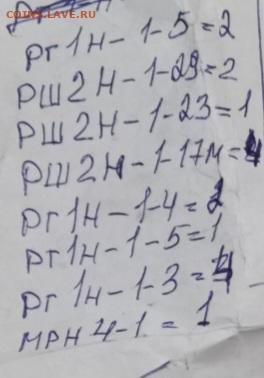 COINSS.LAVE.RU
РГ1Н-1-5=2
РШ2Н-1-29=2
РШ2Н-1-23=1
РШ2Н-1-17М=4
РГ1Н-1-4=2
РГ1Н-1-5=1
РГ1Н-1-3=4
МРН4-1=1